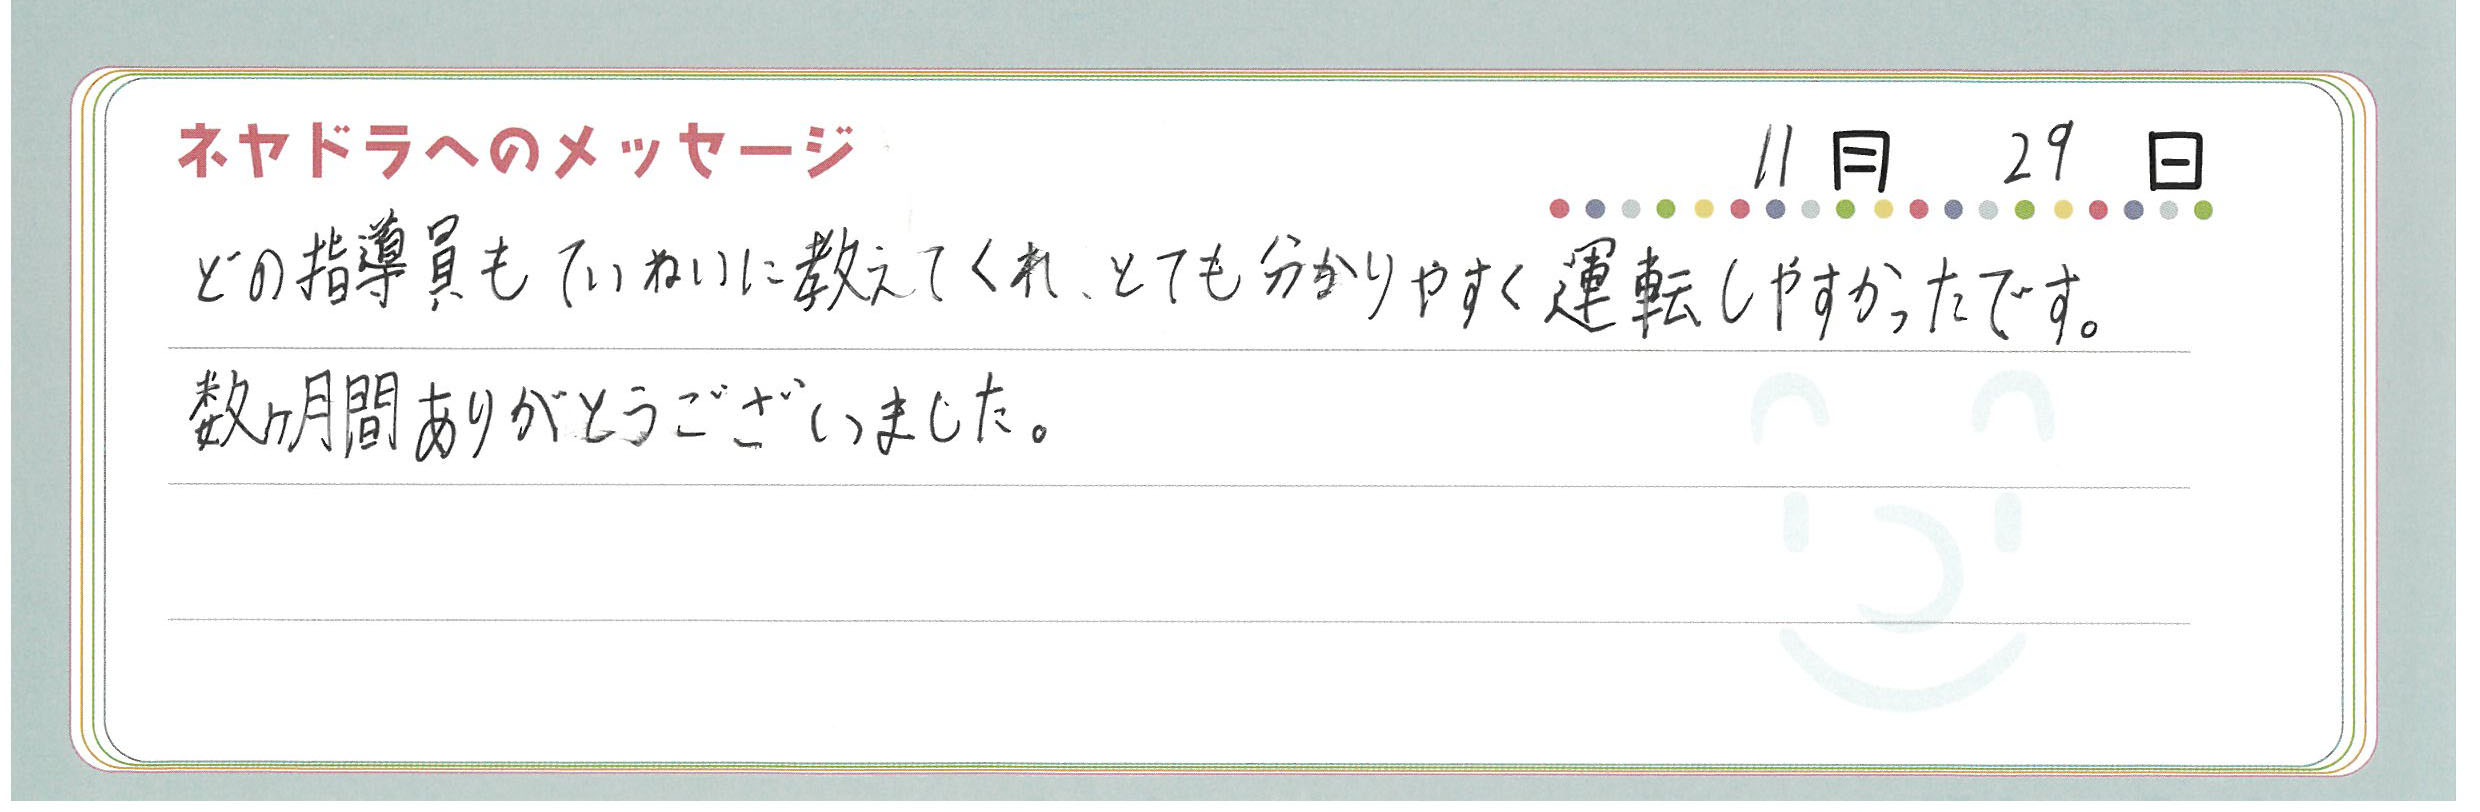 ネヤドラへのメッセージ 11月 29日
どの指導員もていねいに教えてくれ、とても分かりやすく運転しやすかったです。
数ヶ月間ありがとうございました。